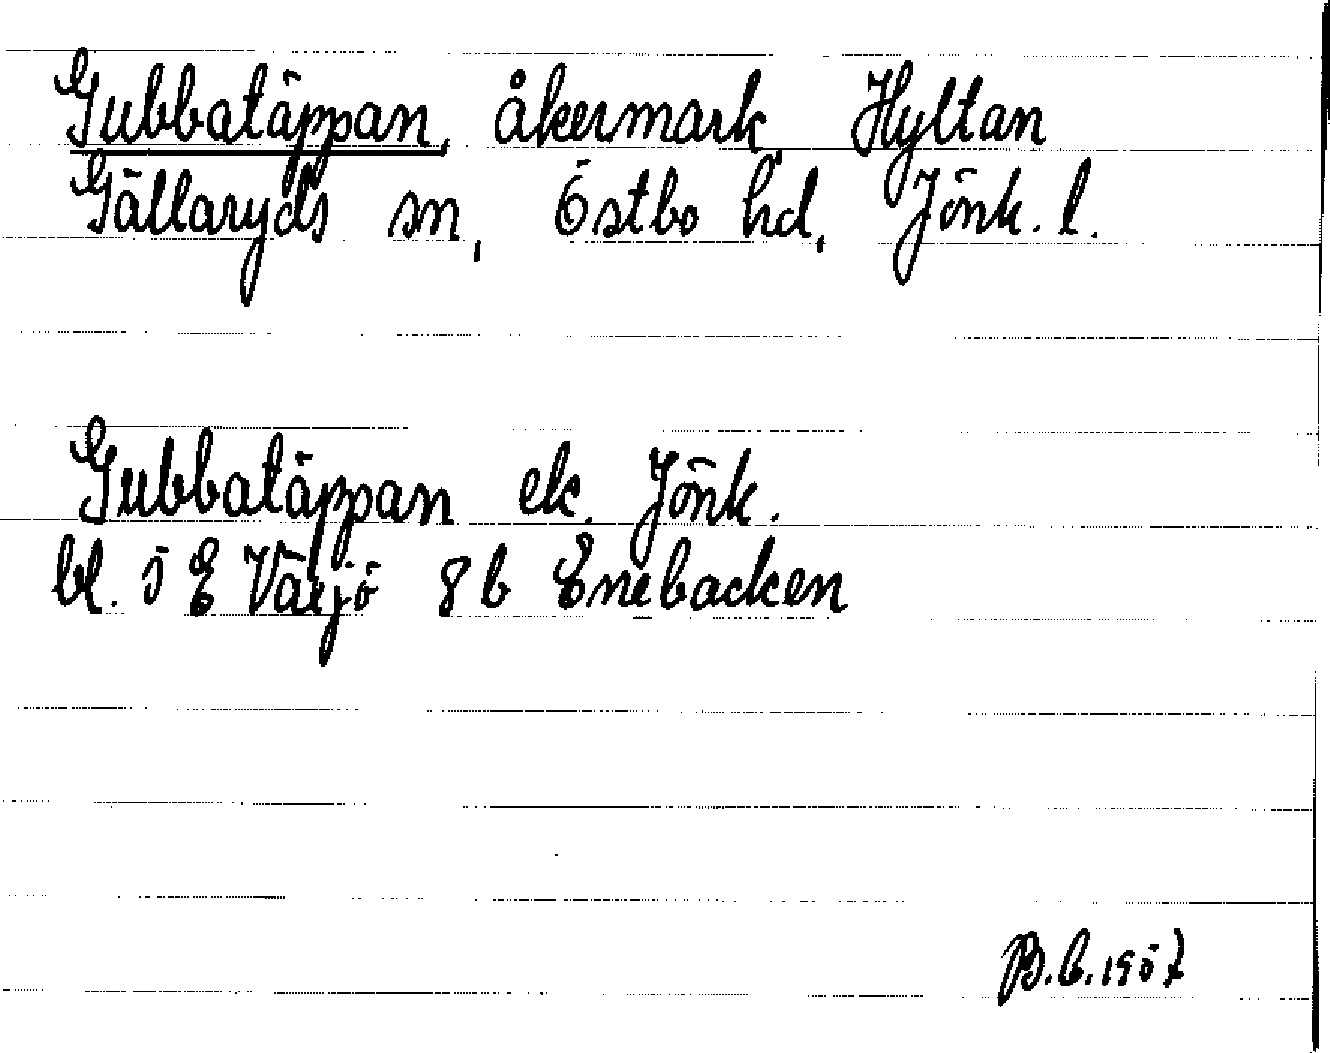 Gubbatäppan, åkermark, Hyltan
Gällaryds sn, Östbo hd, Jönk. l.
Gubbatäppan ek. Jönk.
bl. 5 E Växjö 8 b Enebacken
B.C. 1957